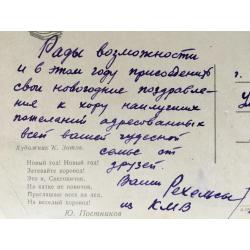 Рады возможности
и в этом году присоединить
свои новогодние поздравле
ния к хору наилучших
пожеланий адресованных
всей вашей чудесной
семье от
друзей.
Ваши
из КМВ
Художник К. Зотов.
Новый год! Новый год!
Затевайте хоровод!
Это я, Снеговичок,
На катке не новичок,
Приглашаю всех на лед,
На веселый хоровод!
Ю. Постников